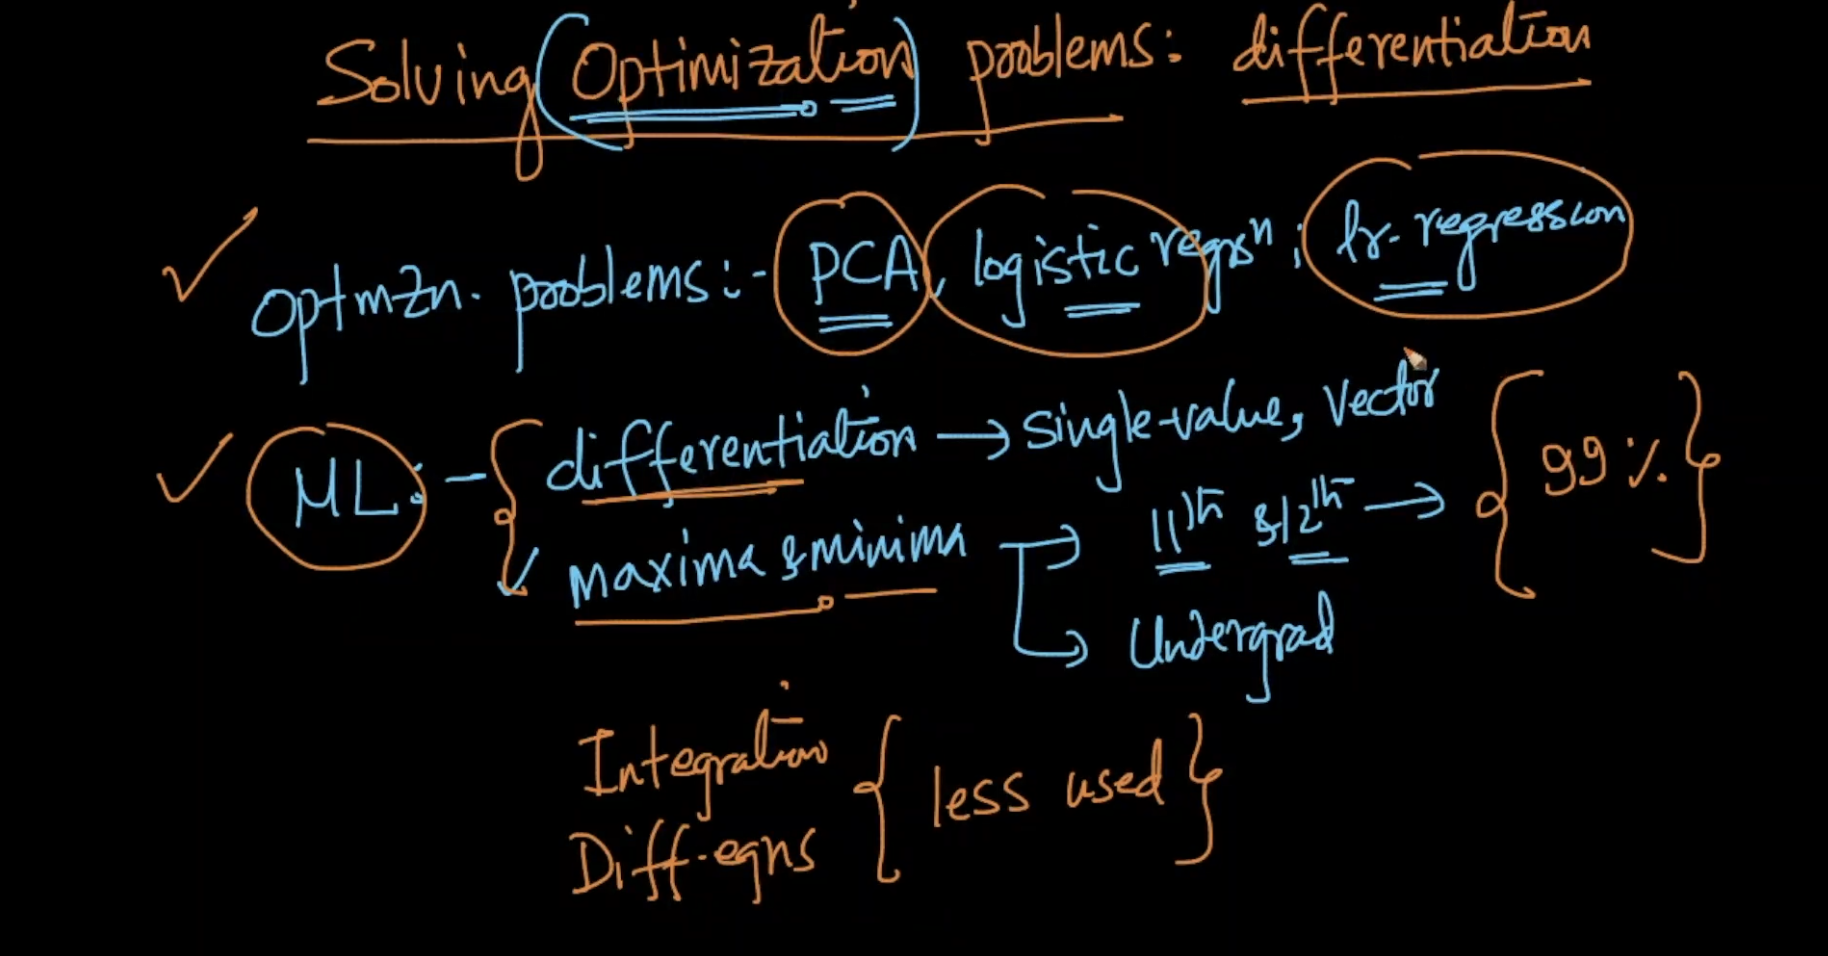 Solving (Optimization) problems: differentiation
Optmzn. problems:- PCA, logistic regrsⁿ, lr. regression
ML: - { differentiation → single-value, vector
maxima & minima → 11th & 12th → { 99% }
→ Undergrad
Integration
Diff-eqns { less used }